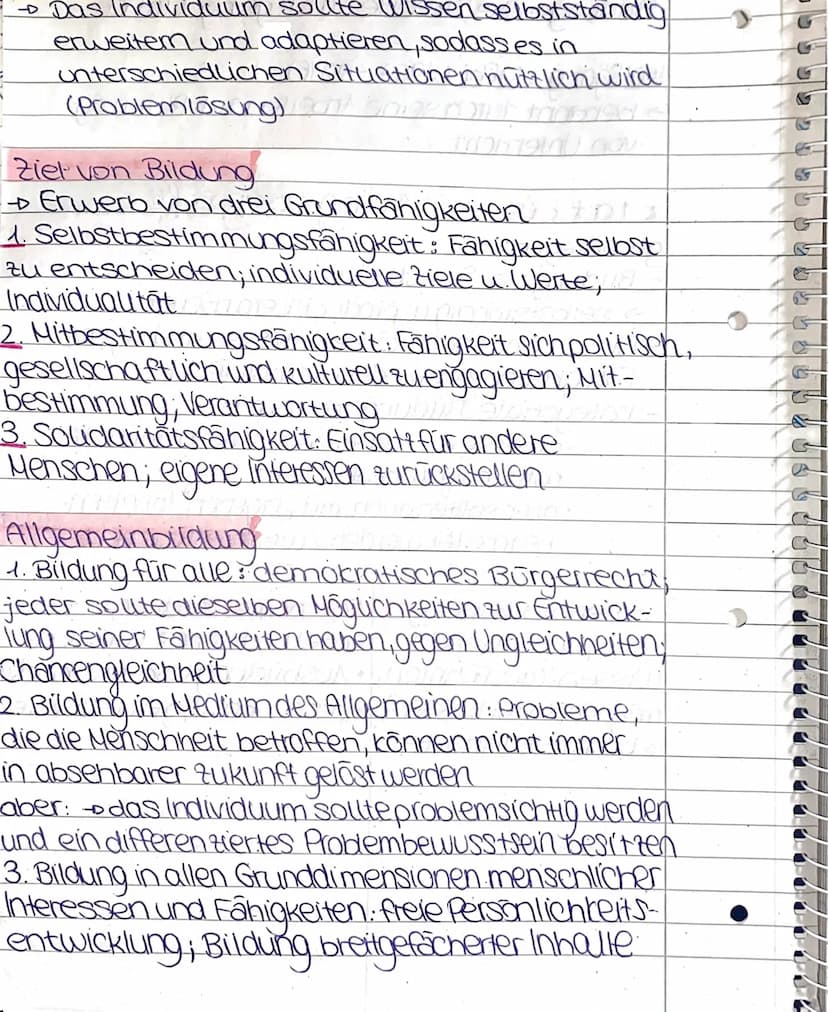 → Das Individuum sollte Wissen selbstständig
erweitern und adaptieren, sodass es in
unterschiedlichen Situationen nützlich wird
(Problemlösung)
Ziel von Bildung
→ Erwerb von drei Grundfähigkeiten
1. Selbstbestimmungsfähigkeit: Fähigkeit selbst
zu entscheiden; individuelle Ziele u. Werte;
Individualität
2. Mitbestimmungsfähigkeit: Fähigkeit sich politisch,
gesellschaftlich und kulturell zu engagieren; Mit-
bestimmung; Verantwortung
3. Solidaritätsfähigkeit: Einsatz für andere
Menschen; eigene Interessen zurückstellen
Allgemeinbildung
1. Bildung für alle: demokratisches Bürgerrecht;
jeder sollte dieselben Möglichkeiten zur Entwick-
lung seiner Fähigkeiten haben, gegen Ungleichheiten;
Chancengleichheit
2. Bildung im Medium des Allgemeinen: Probleme,
die die Menschheit betreffen, können nicht immer
in absehbarer Zukunft gelöst werden
aber: → das Individuum sollte problemsichtig werden
und ein differenziertes Problembewusstsein besitzen
3. Bildung in allen Grunddimensionen menschlicher
Interessen und Fähigkeiten: freie Persönlichkeits-
entwicklung; Bildung breitgefächerter Inhalte